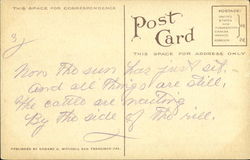 THIS SPACE FOR CORRESPONDENCE
Post Card
THIS SPACE FOR ADDRESS ONLY
Now the sun has just set.
And all things are still,
The cattle are
By the side of the
PUBLISHED BY EDWARD H. MITCHELL SAN FRANCISCO, CAL.